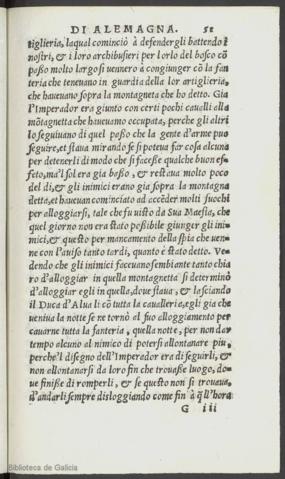 DI ALEMAGNA. 52
tiglieria, laqual cominciò à defendergli battendo i
nostri, & i loro archibusieri per lorlo del bosco cō
passo molto largo si vennero à congiunger cō la fan
teria che teneuano in guardia della lor artiglieria,
che haueuano sopra la montagneta che ho detto. Gia
l'Imperador era giunto con certi pochi caualli alla
mōtagnetta che haueuamo occupata, perche gli altri
lo seguiuano di quel passo che la gente d'arme puo
seguire, et staua mirando se si poteua far cosa alcuna
per detenerli di modo che si facesse qualche buon ef-
feto, ma'l sol era gia basso, & restaua molto poco
del di, & gli inimici erano gia sopra la montagna
detta, et haueuan cominciato ad accēder molti fuochi
per alloggiarsi, tale che fu uisto da Sua Maesta, che
quel giorno non era stato possibile giunger gli ini-
mici, & questo per mancamento della spia che uen-
ne con l'auiso tanto tardi, quanto è stato detto. Ve-
dendo che gli inimici faceuano sembiante tanto chia
ro d'alloggiar in quella montagnetta si determinò
d'alloggiar egli in quella, doue staua, & lasciando
il Duca d'Alua li cō tutta la caualleria, egli gia che
ueniua la notte se ne tornò al suo alloggiamento per
cauarne tutta la fanteria, quella notte, per non dar
tempo alcuno al nimico di potersi allontanare piu,
perche'l disegno dell'Imperador era di seguirli, &
non allontanarsi da loro fin che trouasse luogo, do-
ue finisse di romperli, & se questo non si trouaua,
d'andarli sempre disloggiando come fin à q̃ll'hora
G iii
Biblioteca de Galicia